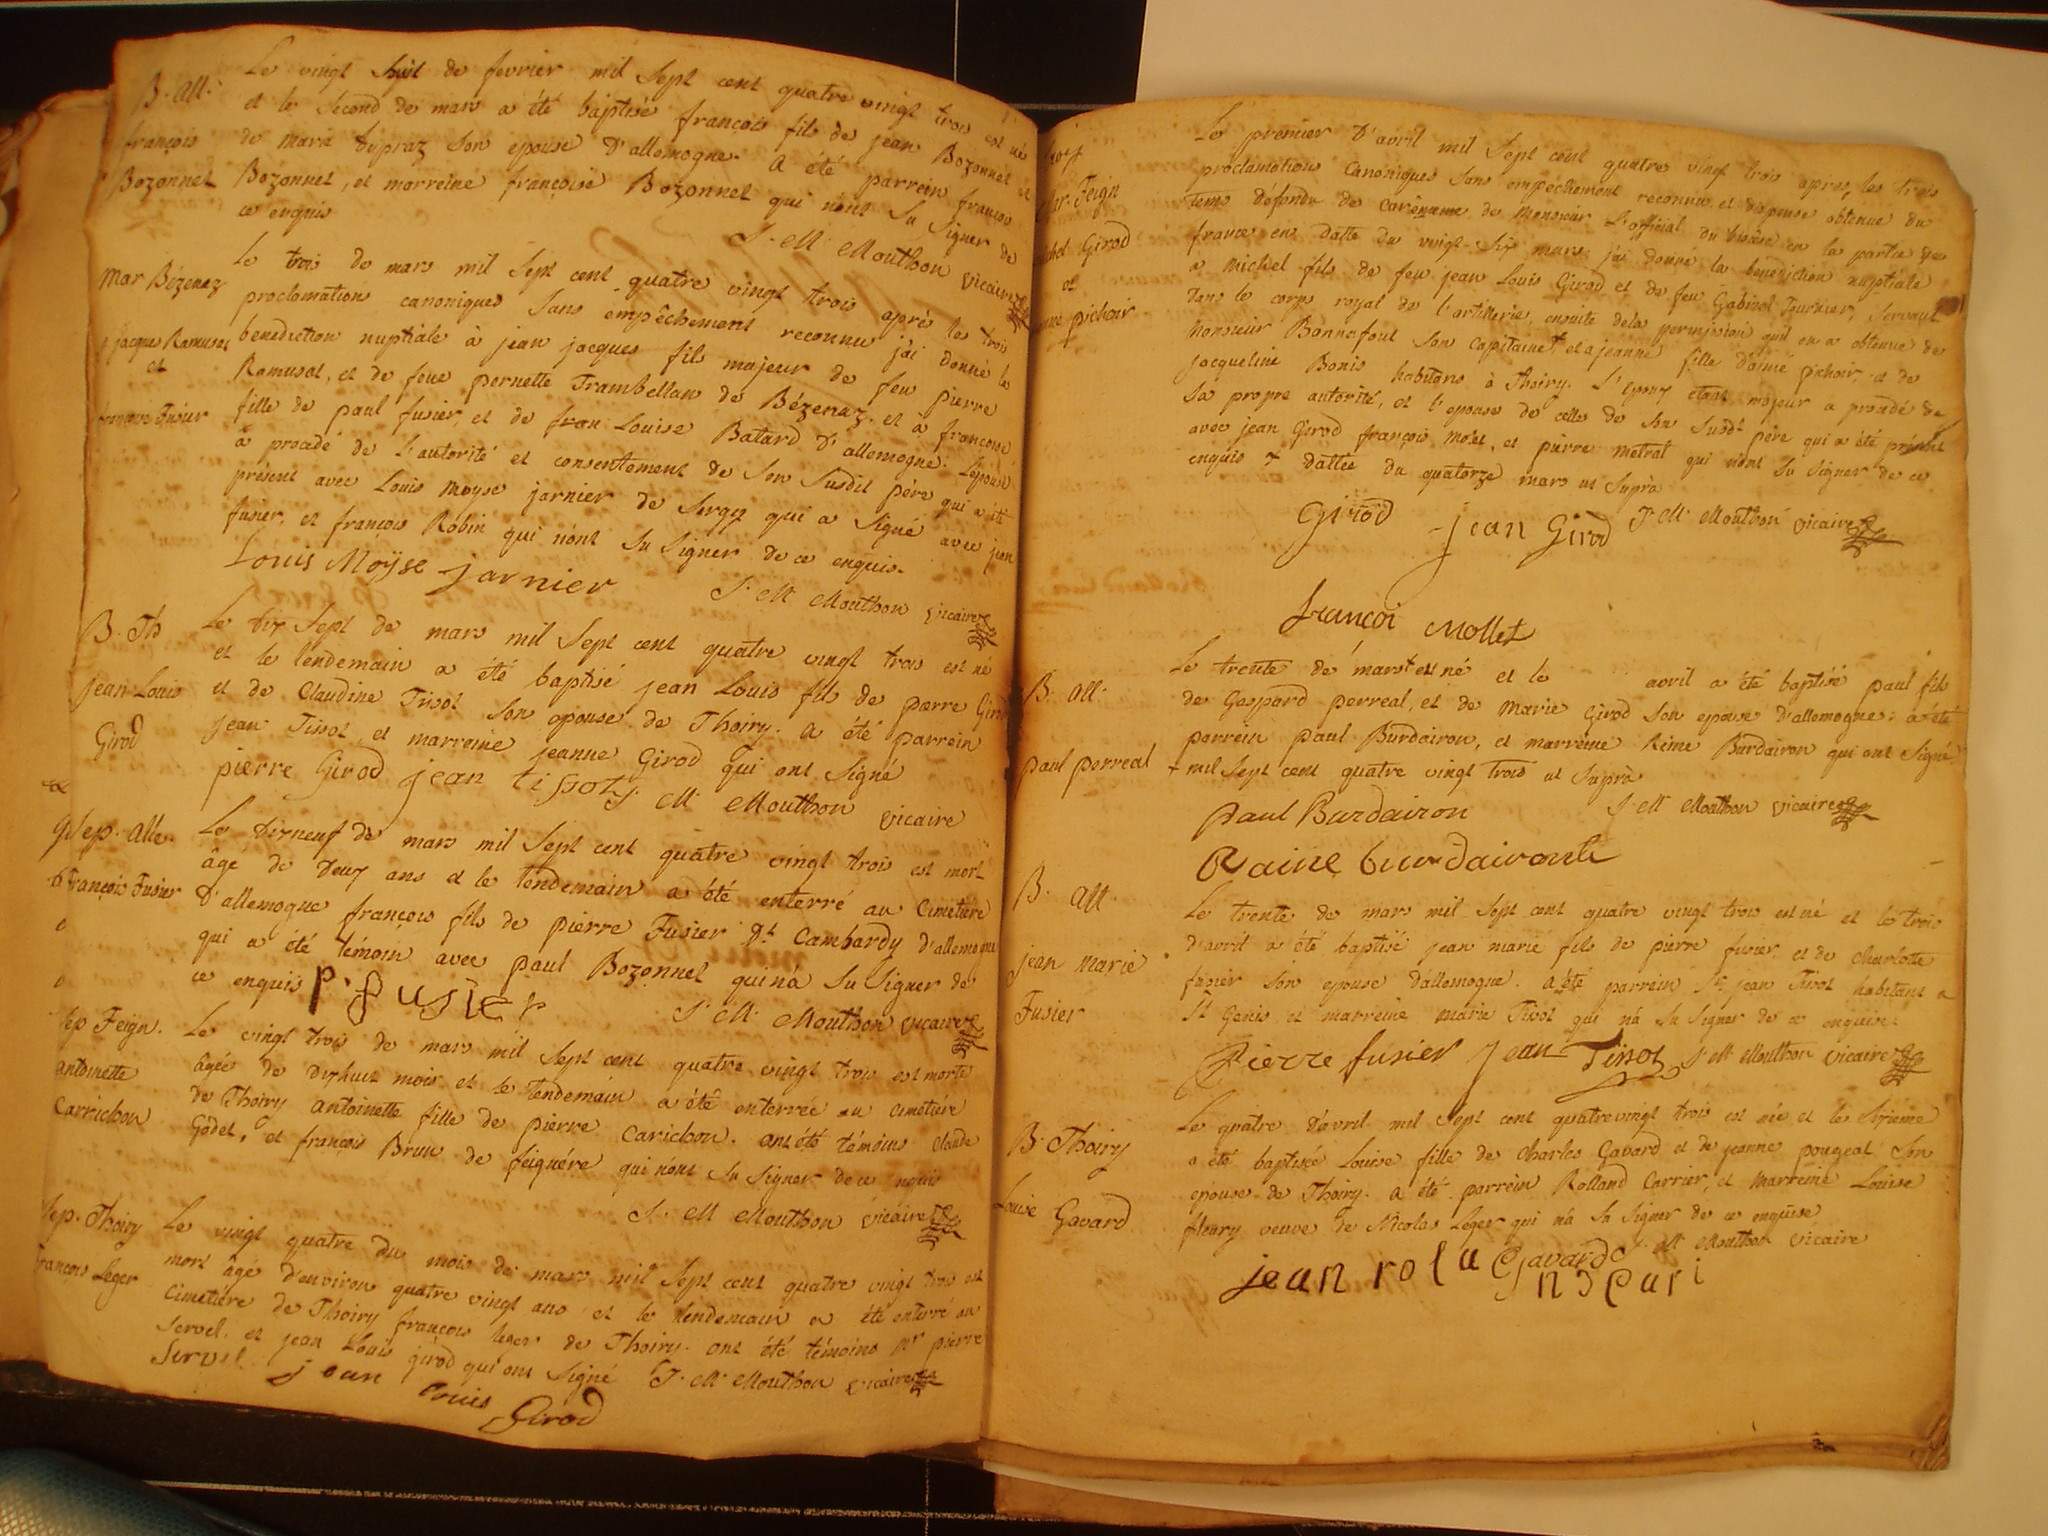 B. All.
françois
Bozonnet
Le vingt huit de fevrier mil Sept cent quatre vingt trois est né
et le Second de mars a été baptisé françois fils de jean Bozonnet et
de maria dupraz Son epouse D'allemogne. A été parrein francois
Bozonnet, et marreine françoise Bozonnet qui n'ont Su Signer de
ce enquis
J. M. Mouthon vicaire
Mar Bézenaz
j jacques Ramusat
et
françoise Fusier
Le trois de mars mil Sept cent quatre vingt trois après les trois
proclamations canoniques Sans empêchement reconnu j'ai donné la
benediction nuptiale à jean jacques fils majeur de feu pierre
Ramusat, et de feue pernette Trambellan de Bézenaz. et à francoise
fille de paul fusier, et de Louise Batard D'allemogne. L'epouse
a procédé de l'autorité et consentement de Son Susdit père qui a été
présent avec Louis moyse jarnier de Sergy qui a Signé avec jean
fusier, et françois Robin qui n'ont Su Signer de ce enquis.
Louis Moÿse jarnier J. M. Mouthon vicaire
B. Th
jean Louis
Girod
Le dix Sept de mars mil Sept cent quatre vingt trois est né
et le lendemain a été baptisé jean Louis fils de pierre Girod
et de Claudine Tisot Son epouse de Thoiry. a été parrein
jean Tissot, et marreine jeanne Girod qui ont Signé
pierre Girod jean tissot J. M. Mouthon vicaire
Sep. Alle.
françois Fusier
Le dixneuf de mars mil Sept cent quatre vingt trois est mort
âgé de deux ans et le lendemain a été enterré au Cimetiere
D'allemogne françois fils de pierre Fusier dt Cambardy d'allemogne
qui a été témoin avec paul Bozonnet qui n'a Su Signer de
ce enquis P. fusier
J. M. Mouthon vicaire
Sep Feign.
antoinette
Carrichon
Le vingt trois de mars mil Sept cent quatre vingt trois est morte
âgée de dixhuit mois et le lendemain a été enterrée au cimetiére
de Thoiry antoinette fille de pierre Carichon. ont été témoins claude
Godet, et françois Brun de feignére qui n'ont Su Signer de ce enquis
J. M Mouthon vicaire
Sep. Thoiry
françois Leger
Le vingt quatre du mois de mars mil Sept cent quatre vingt trois est
mort âgé d'environ quatre vingt ans et le lendemain a été enterré au
Cimetiere de Thoiry françois leger de Thoiry. ont été témoins Sr pierre
Servel. et jean Louis girod qui ont Signé J. M. Mouthon vicaire
Servel jean Louis Girod
Mar. Feign
Michel Girod
et
jeanne pichoir
Le premier d'avril mil Sept cent quatre vingt trois apres les trois
proclamations Canoniques Sans empéchement reconnu et dispense obtenue du
tems defendu de carême de Monsieur L'official du diocése en la partie de
france en datte du vingt-Six mars j'ai donné la benediction nuptiale
a michel fils de feu jean Louis Girod et de feu Gabriel Tournier, Servant
dans le corps royal de l'artillerie, ensuite dela permission quil en a obtenue de
monsieur Bonnafout Son capitaine+ et a jeanne fille d'aimé pichoir, et de
jacqueline Bonis habitans à Thoiry. L'epoux étant majeur a procédé de
Sa propre autorité, et l'epouse de celle de Son Susdt père qui a été présent
avec jean Girod françois molet, et pierre metrat qui n'ont Su Signer de ce
enquis + dattée du quatorze mars ut Suprà
Girod jean Girod J. M. Mouthon vicaire
françoi Mollet
B. All.
paul perreal
Le trente de mars+ est né et le avril a été baptisé paul fils
de Gaspard perreal, et de Marie Girod Son epouse d'allemogne; a été
parrein paul Burdairon, et marreine Reine Burdairon qui ont Signé
+ mil Sept cent quatre vingt trois ut Suprà
paul Burdairon J. M Mouthon vicaire
Raine burdairon
B. All.
jean marie
Fusier
Le trente de mars mil Sept cent quatre vingt trois est né et le trois
d'avril a été baptisé jean marie fils de pierre fusier, et de charlotte
fusier Son epouse d'allemogne. a été parrein Sr jean Tissot habitant a
St Genis et marreine marie Tissot qui n'a Su Signer de ce enquise.
Pierre fusier jean Tissot J. M Mouthon vicaire
B. Thoiry
Louise Gavard
Le quatre d'avril mil Sept cent quatrevingt trois est née et le Sixieme
a été baptisée Louise fille de charles Gavard et de jeanne pougeat Son
epouse de Thoiry. a été parrein Rolland Carrier, et marreine Louise
fleury veuve de Nicolas Leger qui n'a Su Signer de ce enquise
Gavard J. M Mouthon vicaire
jean rola